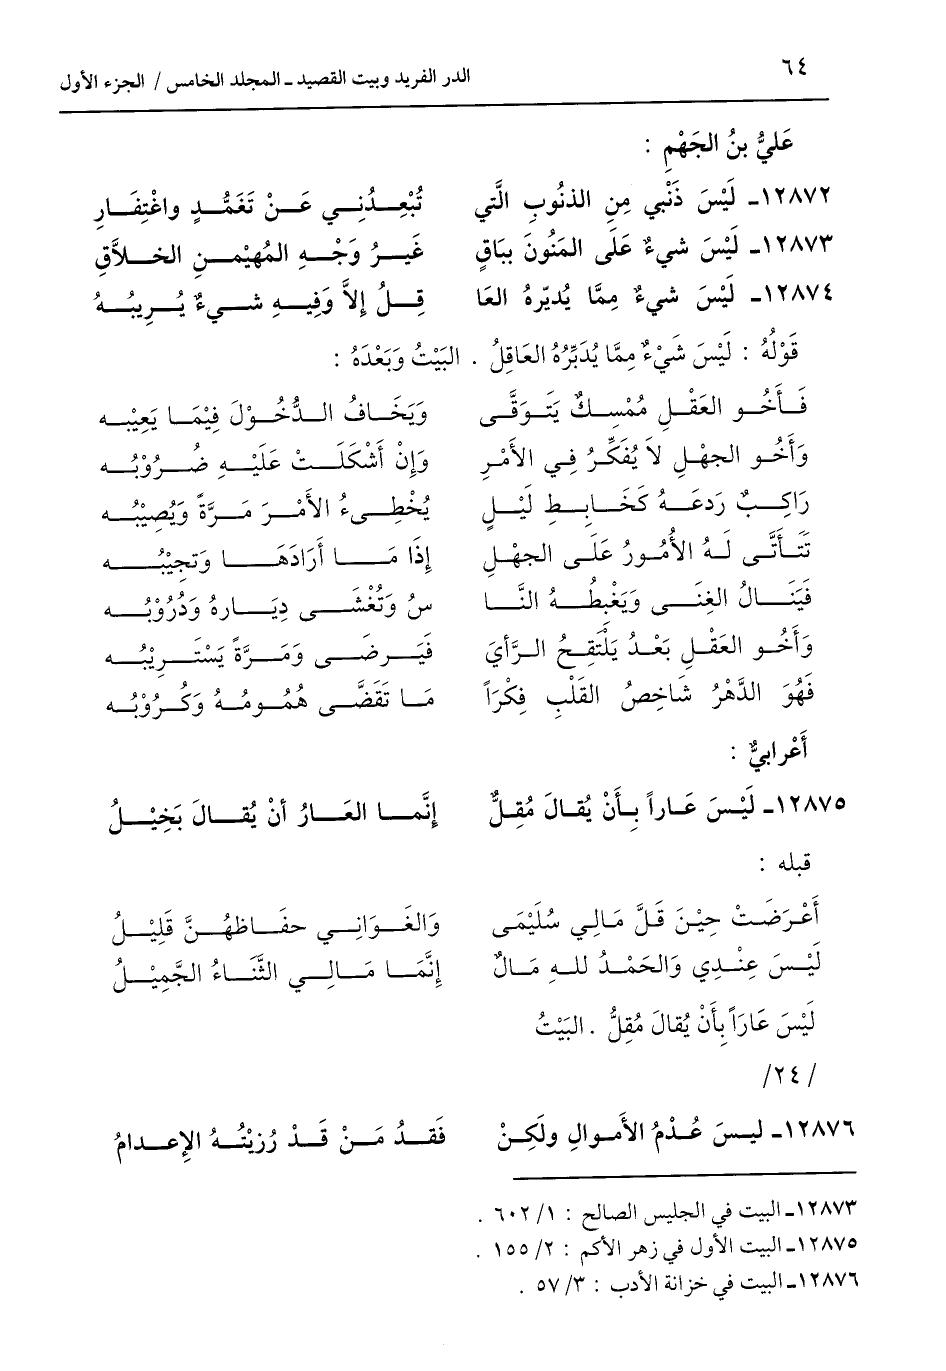 ٦٤
الدر الفريد وبيت القصيد ـ المجلد الخامس / الجزء الأول
عَليُّ بنُ الجَهْمِ :
١٢٨٧٢ـ لَيْسَ ذَنْبي مِنِ الذنُوبِ الَّتي تُبْعِـدُنِـي عَـنْ تَغَمُّـدٍ واغْتِفَـارِ
١٢٨٧٣ـ لَيْسَ شيءٌ عَلَى المَنُونَ بِبَاقٍ غَيـرُ وَجْـهِ المُهَيْمـنِ الخـلاَّقِ
١٢٨٧٤ـ لَيْسَ شيءٌ مِمَّا يُدَبّرهُ العَا قِـلُ إلاَّ وَفِيـهِ شـيءٌ يُـرِيبُـهُ
قَوْلُهُ : لَيْسَ شَيْءٌ مِمَّا يُدَبِّرُهُ العَاقِلُ . البَيْتُ وَبَعْدَهُ :
فَـأَخُـو العَقْـلِ مُمْسِـكٌ يَتَـوَقَّـى وَيَخَـافُ الـدُّخُـوْلَ فِيْمَـا يَعِيْبُـه
وَأَخُـو الجهْـلِ لاَ يُفَكِّـرُ فِـي الأَمْـرِ وَإنْ أَشْكَلَـتْ عَلَيْـهِ ضُـرُوْبُـه
رَاكِـبٌ رَدعَـهُ كَخَـابِـطِ لَيْـلٍ يُخْطِـىءُ الأَمْـرَ مَـرَّةً وَيُصِيْبُـه
تَتَـأتَّـى لَـهُ الأُمُـورُ عَلَـى الجهْـلِ إذَا مَـا أَرَادَهَـا وَتجِيْبُـه
فَيَنَـالُ الغِنَـى وَيَغْبِطُـهُ النَّـا سُ وَتَغْشَـى دِيَـارهُ وَدُرُوْبُـه
وَأَخُـو العَقْـلِ بَعْـدُ يَلْتَقِـحُ الـرَّأيَ فَيَـرضَـى وَمَـرَّةً يَسْتَـرِيْبُـه
فَهُوَ الدَّهْرُ شَاخِصُ القَلْبِ فِكْرَاً مَـا تَقَضَّـى هُمُـومُـهُ وَكُـرُوْبُـه
أَعْرابيٌّ :
١٢٨٧٥ـ لَيْسَ عَـاراً بـأَنْ يُقـالَ مُقِـلٌّ إنَّمـا العَـارُ أنْ يُقـالَ بَخِيْـلُ
قبله :
أَعْـرَضَـتْ حِيْـنَ قَـلَّ مَـالِي سُلَيْمَى وَالغَـوَانِـي حفَـاظهُـنَّ قَلِيْـلُ
لَيْـسَ عِنْـدِي وَالحَمْـدُ للـهِ مَـالٌ إنَّمَـا مَـالِـي الثَّنَـاءُ الجَّمِيْـلُ
لَيْسَ عَارَاً بِأَنْ يُقَالَ مُقِلٌّ . البَيْتُ
/٢٤/
١٢٨٧٦ـ ليـسَ عُـدْمُ الأَموالِ ولَكِـنْ فَقـدُ مَـنْ قَـدْ رُزِيْتُـهُ الإعـدامُ
١٢٨٧٣ـ البيت في الجليس الصالح : ١/ ٦٠٢ .
١٢٨٧٥ـ البيت الأول في زهر الأكم : ٢/ ١٥٥ .
١٢٨٧٦ـ البيت في خزانة الأدب : ٣/ ٥٧ .